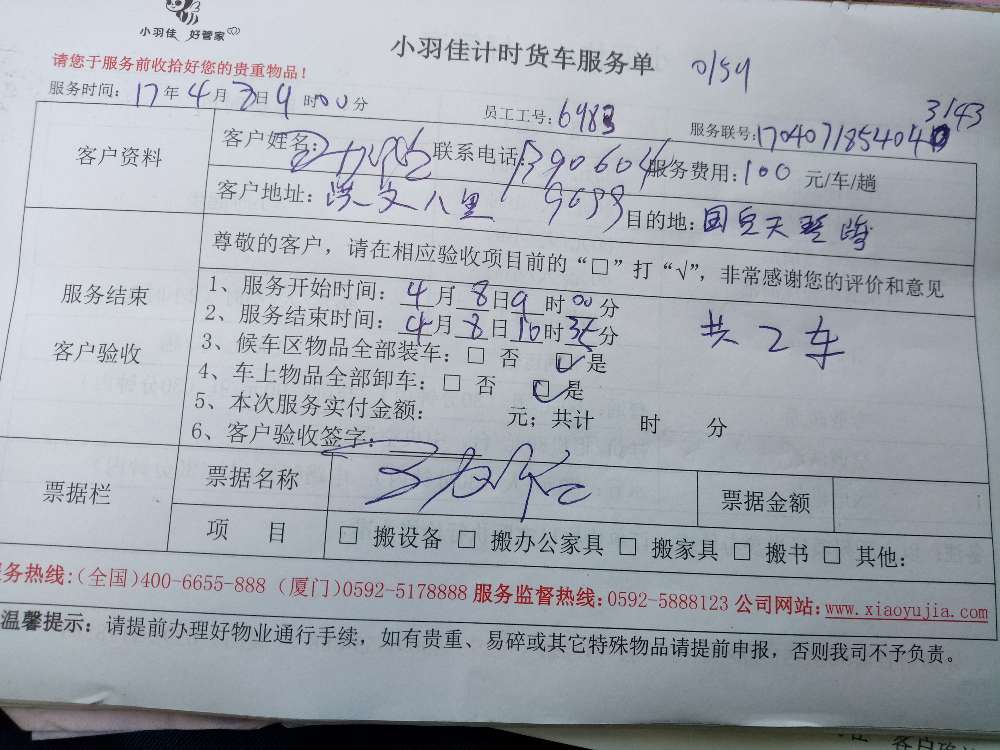 小羽佳 好管家
小羽佳计时货车服务单 0154
请您于服务前收拾好您的贵重物品！
服务时间：17年4月8日9时00分 员工工号：6983 服务联号：170407185404 3143
客户资料
客户姓名： 联系电话： 服务费用：100 元/车/趟
客户地址：洪文八里 目的地：国贸天琴湾
服务结束
客户验收
尊敬的客户，请在相应验收项目前的“□”打“√”，非常感谢您的评价和意见
1、服务开始时间：4月8日9时00分
2、服务结束时间：4月8日10时35分
共2车
3、候车区物品全部装车：□ 否 □ 是
4、车上物品全部卸车：□ 否 □ 是
5、本次服务实付金额： 元；共计 时 分
6、客户验收签字：
票据栏
票据名称 票据金额
项 目 □ 搬设备 □ 搬办公家具 □ 搬家具 □ 搬书 □ 其他：
务热线：（全国）400-6655-888（厦门）0592-5178888 服务监督热线：0592-5888123 公司网站：www.xiaoyujia.com
温馨提示：请提前办理好物业通行手续，如有贵重、易碎或其它特殊物品请提前申报，否则我司不予负责。